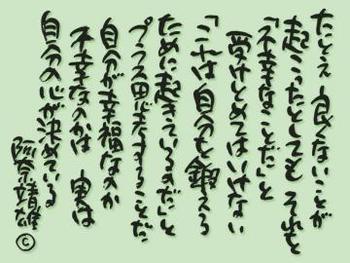 たとえ 良くないことが
起こったとしても それを
「不幸なことだ」と
受けとめてはいけない
「これは 自分を 鍛える
ために起きているのだ」と
プラス思考することだ
自分が幸福なのか
不幸なのかは 実は
自分の心が決めている
阿奈靖雄
©